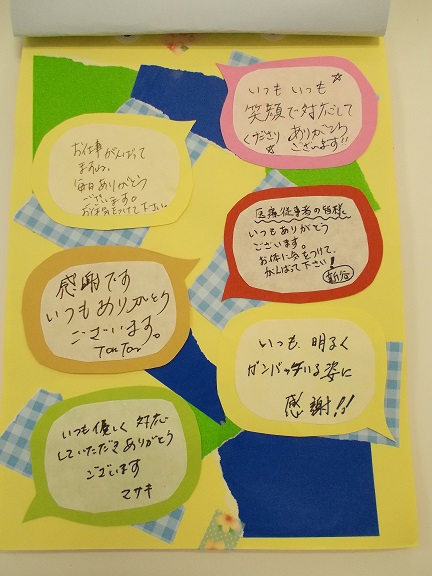 いつもいつも
笑顔で対応して
くださり ありがとう
ございます!!
お仕事がんばって
ますね。
毎日ありがとう
ございます。
お体気をつけて下さい。
医療従事者の皆様
いつもありがとう
ございます。
お体に気をつけて、
がんばって下さい!
感謝です
いつもありがとう
ございます。
TonTon
いつも 明るく
ガンバッテいる姿に
感謝!!
いつも優しく 対応
していただきありがとう
ございます
マサキ